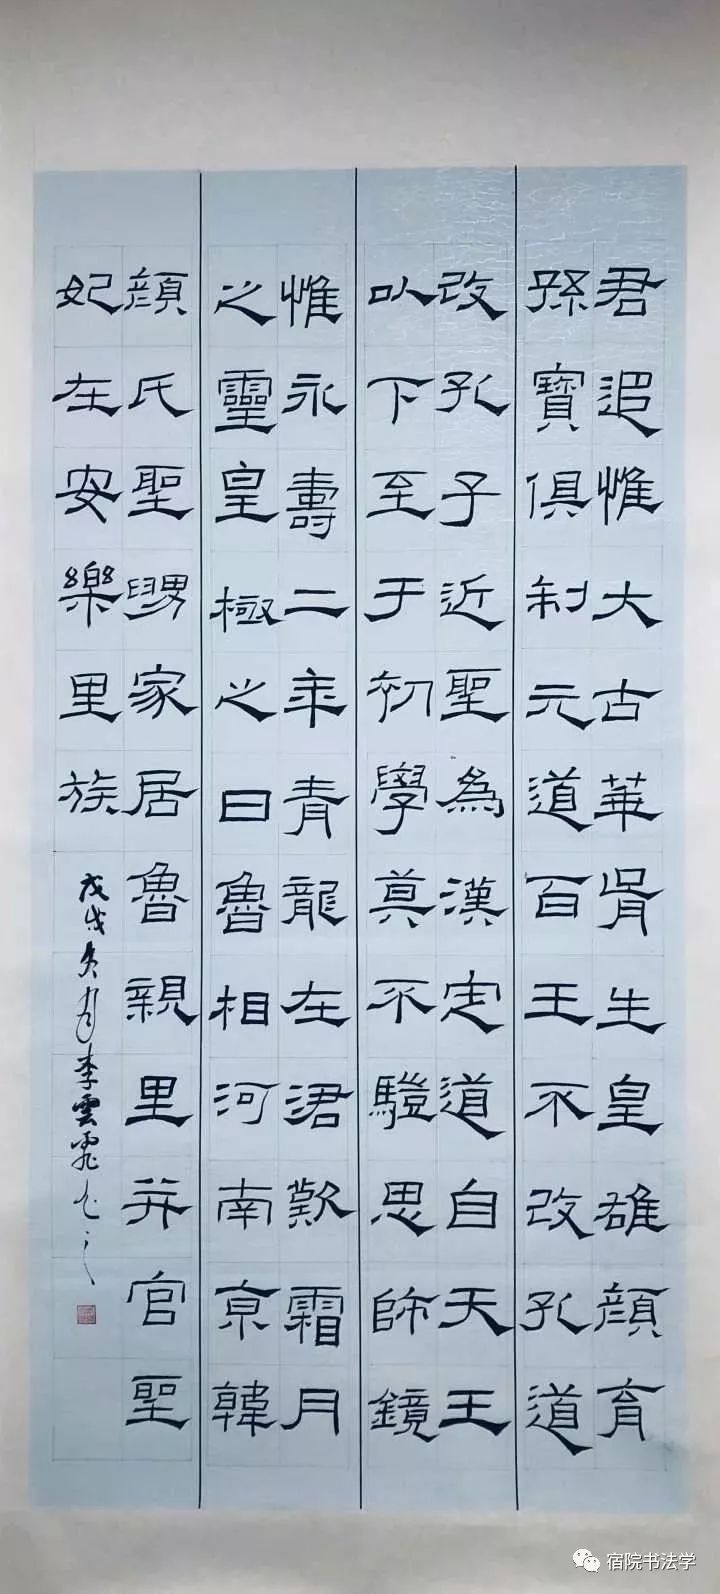 君追惟大古華胥生皇雄顏育
孫寶俱制元道百王不改孔道
改孔子近聖為漢定道自天王
以下至于初學莫不驥思師鏡
惟永壽二年青龍在涒歎霜月
之靈皇極之日魯相河南京韓
顏氏聖舅家居魯親里并官聖
妃在安樂里族
戊戌冬月李雲飛
宿院书法学